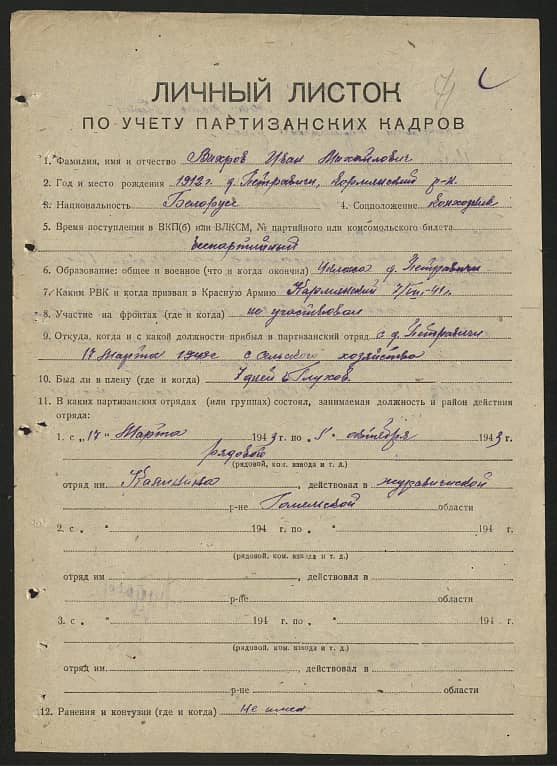 ЛИЧНЫЙ ЛИСТОК
ПО УЧЕТУ ПАРТИЗАНСКИХ КАДРОВ
1. Фамилия, имя и отчество Вихров Иван Михайлович
2. Год и место рождения 1912 г. д. Петравичи, Кормянский р-н.
3. Национальность Белорус 4. Соцположение Колхозник
5. Время поступления в ВКП(б) или ВЛКСМ, № партийного или комсомольского билета
беспартийный
6. Образование: общее и военное (что и когда окончил) школа д. Петравичи
7. Каким РВК и когда призван в Красную Армию Кармянский 7/VII-41 г.
8. Участие на фронтах (где и когда) не участвовал
9. Откуда, когда и с какой должности прибыл в партизанский отряд с д. Петравичи
17 Марта с сельского хозяйства
10. Был ли в плену (где и когда) 7 дней Глухов
11. В каких партизанских отрядах (или группах) состоял, занимаемая должность и район действия
отряда:
1. с „17" Марта 1943 г. по октября 1943 г.
рядовой
(рядовой, ком. взвода и т. д.)
отряд им Калинина, действовал в
р-не Гомельской области
2. с „ " 194 г. по „ " 194 г.
(рядовой, ком. взвода и т. д.)
отряд им , действовал в
р-не области
3. с „ " 194 г. по „ " 194 г.
(рядовой, ком. взвода и т. д.)
отряд им , действовал в
р-не области
12. Ранения и контузии (где и когда) Не имел